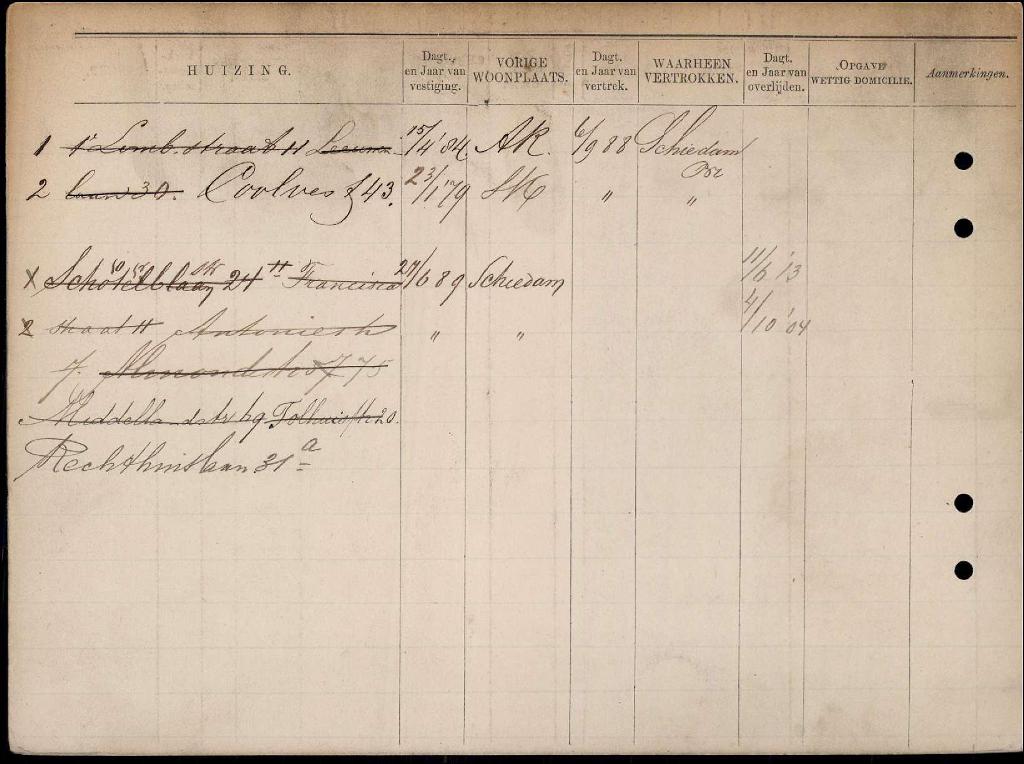 HUIZING.
Dagt. en Jaar van vestiging.
VORIGE WOONPLAATS.
Dagt. en Jaar van vertrek.
WAARHEEN VERTROKKEN.
Dagt. en Jaar van overlijden.
OPGAVE WETTIG DOMICILIE.
Aanmerkingen.
1 1e Lomb. straat 11 Leeuwen 15/4 '84 AK. 6/9 88 Schiedam
2 laan 30. Coolves 43. 23/1 '79 " "
x 24 Francisca 27/6 89 Schiedam 11/6 '13
2 straat 11 Antoniestr " " 4/10 '04
7. Almondestr 75
Middellandstr 69 Tolhuisstr 20.
Rechthuislaan 31 a